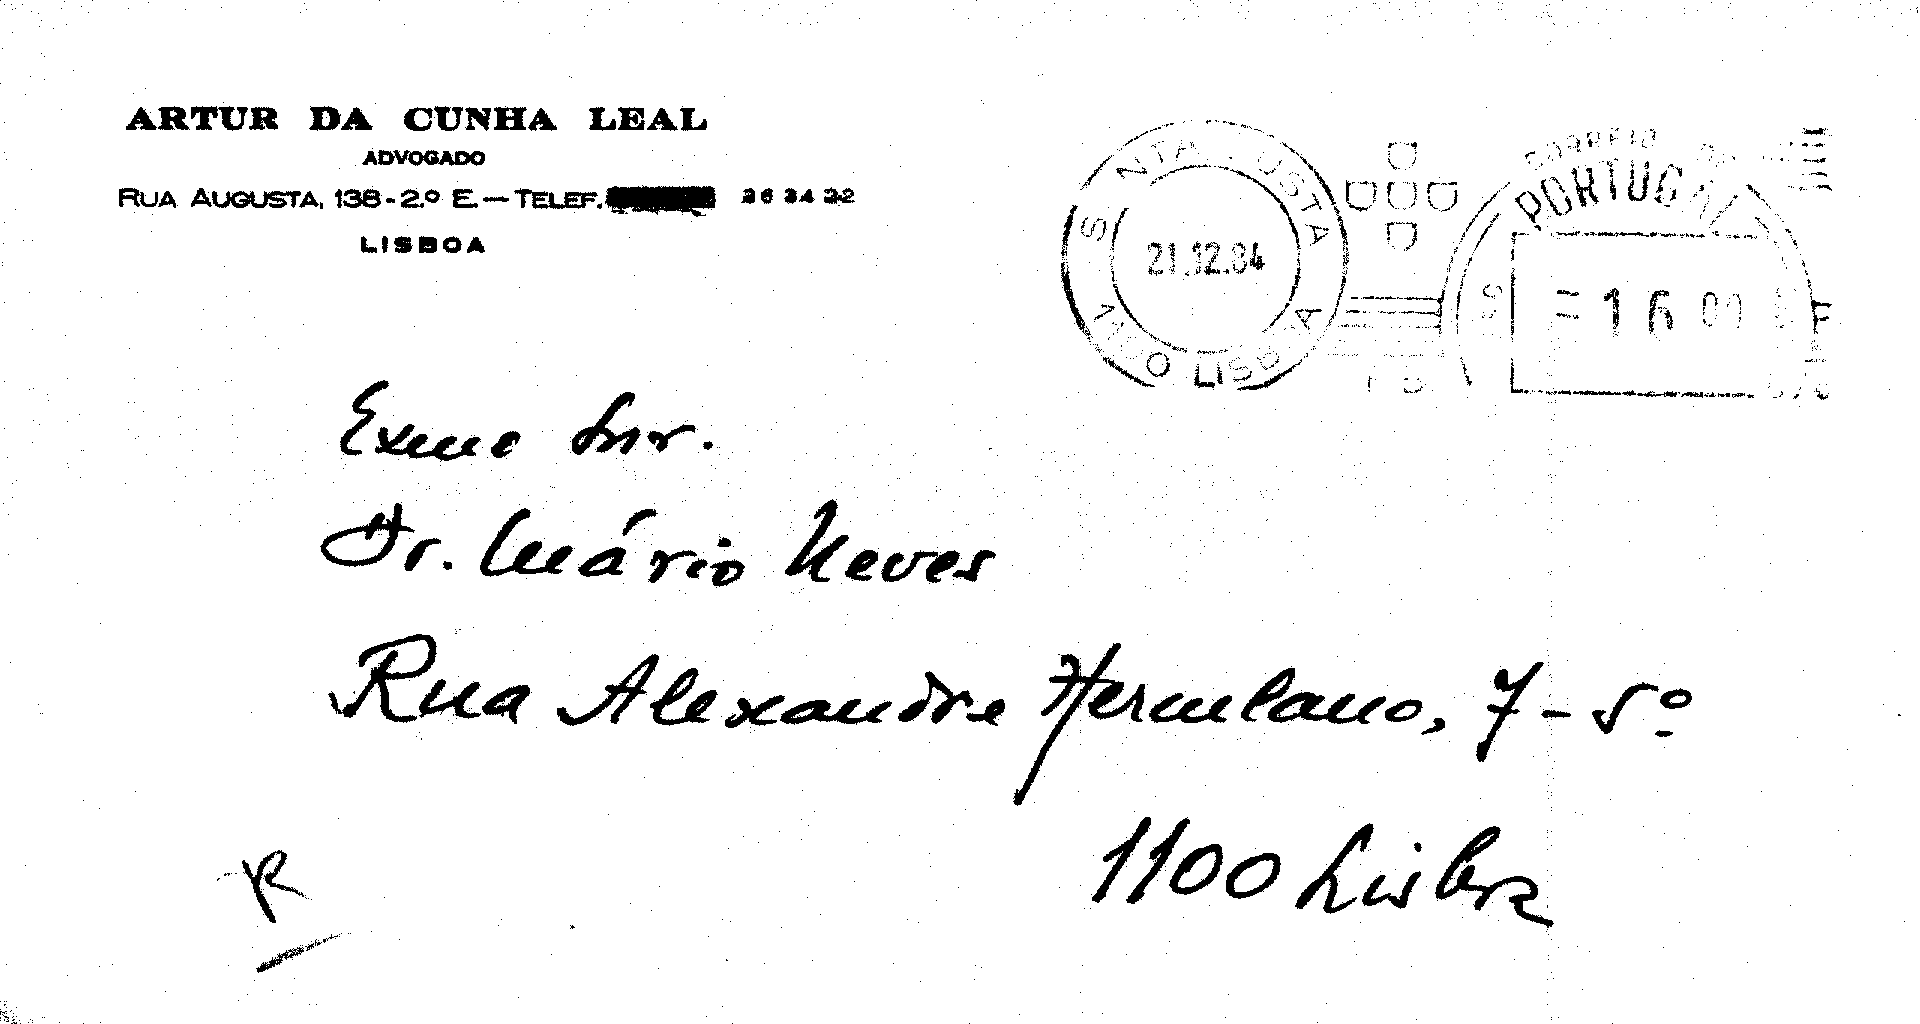 ARTUR DA CUNHA LEAL
ADVOGADO
RUA AUGUSTA, 138-2.º E. — TELEF. 36 34 32
LISBOA
LISBOA
21.12.84
CORREIO
PORTUGAL
16 00
Exmo Snr.
Dr. Mário Neves
Rua Alexandre Herculano, 7-5º
1100 Lisboa
R